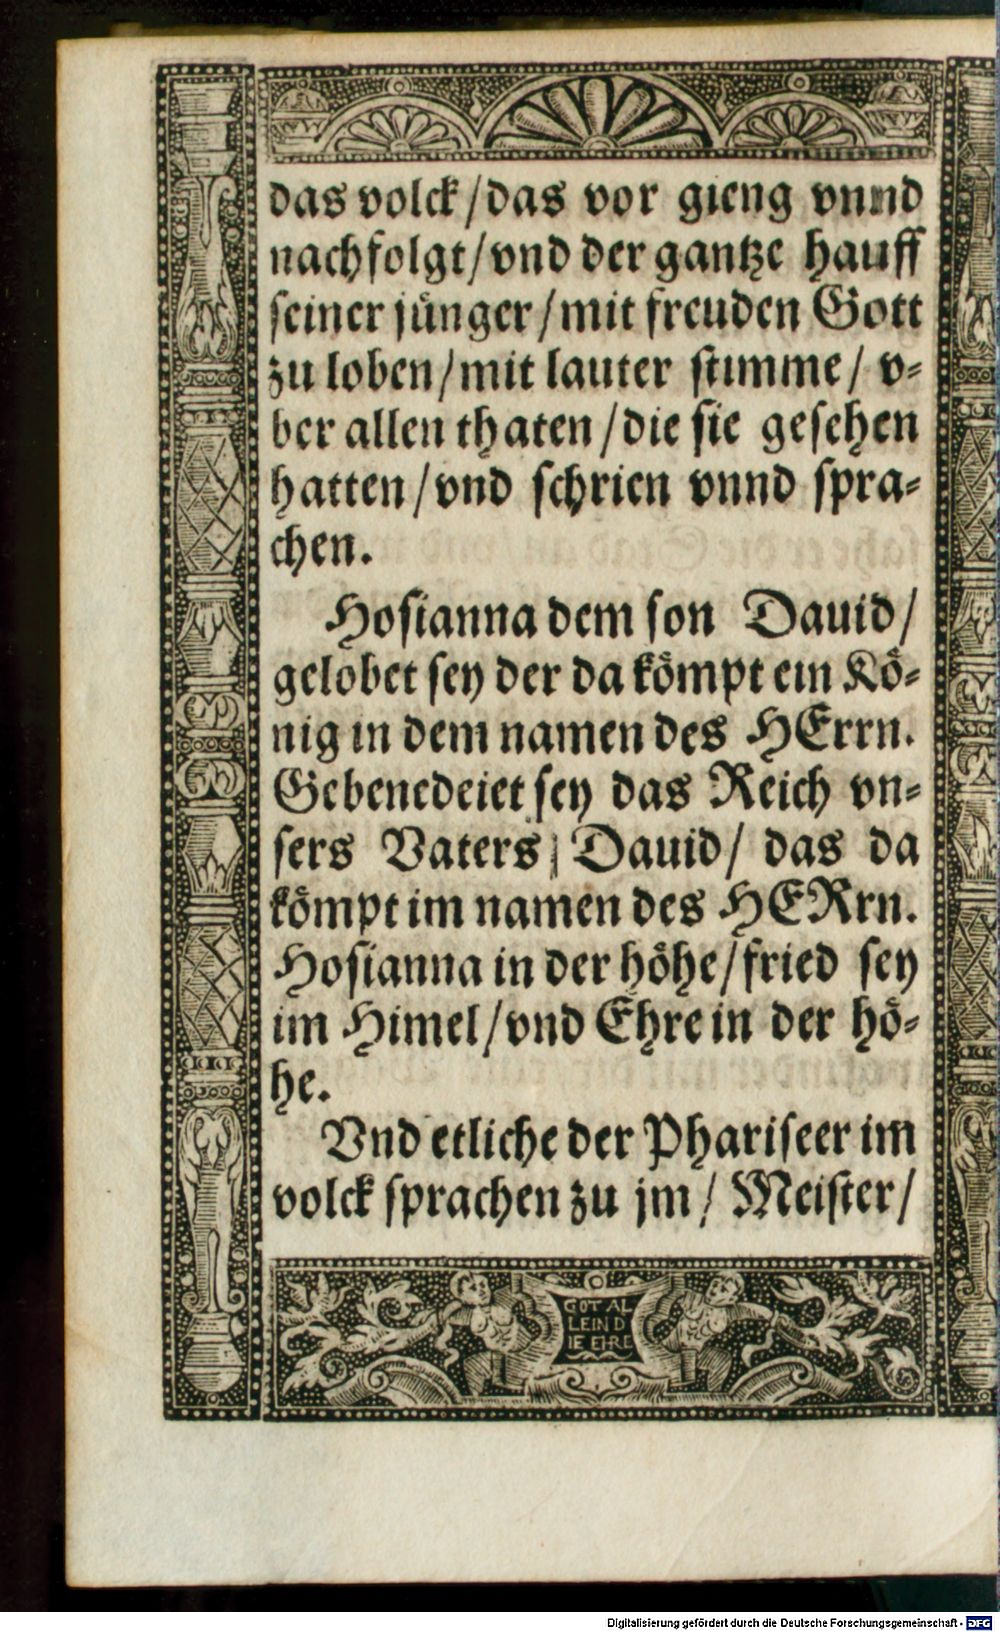 das volck / das vor gieng vnnd
nachfolgt / vnd der gantze hauff
seiner jünger / mit freuden Gott
zu loben / mit lauter stimme / v-
ber allen thaten / die sie gesehen
hatten / vnd schrien vnnd spra-
chen.
Hosianna dem son Dauid /
gelobet sey der da kömpt ein Kö-
nig in dem namen des HErrn.
Gebenedeiet sey das Reich vn-
sers Vaters / Dauid / das da
kömpt im namen des HERrn.
Hosianna in der höhe / fried sey
im Himel / vnd Ehre in der hö-
he.
Vnd etliche der Phariseer im
volck sprachen zu jm / Meister /
GOT AL
LEIN D
IE EHRE
Digitalisierung gefördert durch die Deutsche Forschungsgemeinschaft - DFG